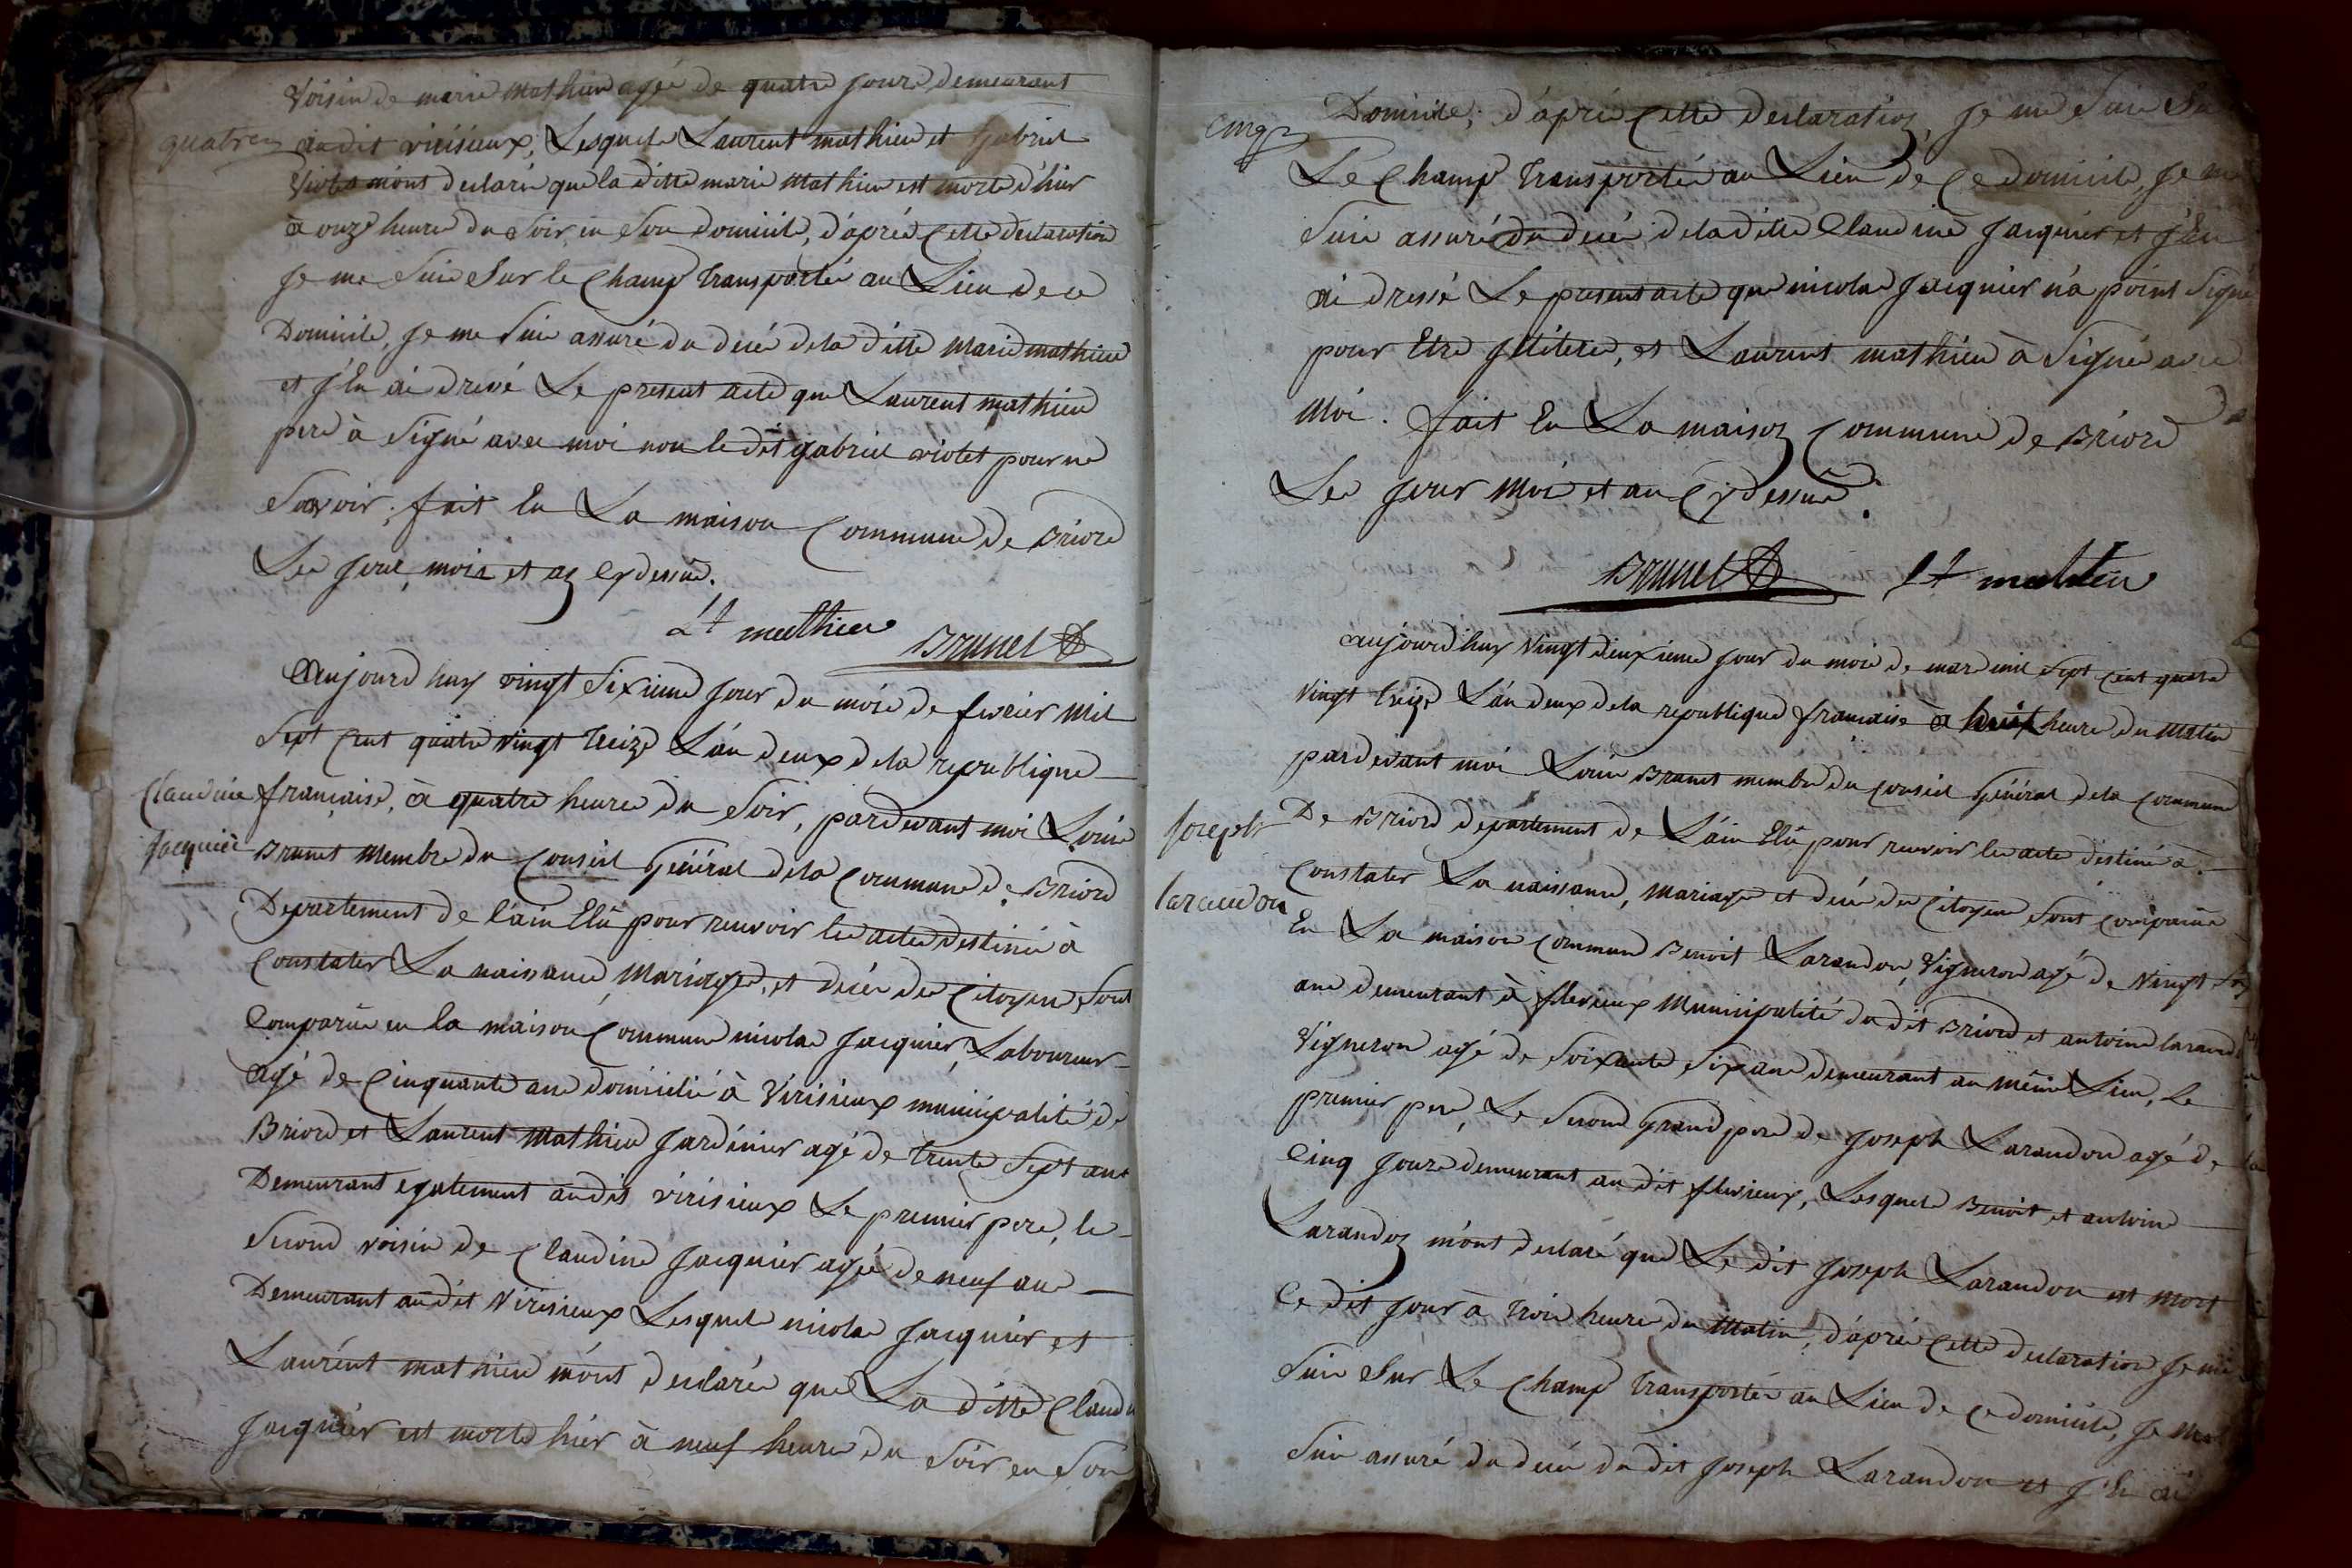 voisin de marie mathieu agée de quatre jours demeurant
quatre
audit virisieux, Lesquels Laurent mathieu et gabriel
violet m'ont declarés que la ditte marie mathieu est morte d'hier
à onze heures du soir en son domicile, d'aprés cette declaration
je me suis sur le champ transportée au Lieu de ce
Domicile, je me suis assuré du decés dela ditte marie mathieu
et j'en ai dressé Le present acte que Laurent mathieu
pere à signé avec moi non le dit gabriel violet pour ne
savoir; fait en La maison Commune de Briord
Les jour, mois et an cy dessus.
Lt matthieu Brunet
aujourd huy vingt sixieme jour du mois de fevrier mil
sept cent quatre vingt treize L'an deux dela republique
Claudine
jacquier
française, à quatre heures du soir, pardevant moi Louis
Brunet membre du Conseil Général dela Commune de Briord
Departement de l'ain Elû pour recevoir les actes destinés à
Constater La naissance, mariages, et decés des Citoyens, sont
Comparus en la maison Commune nicolas jacquier, Laboureur
agé de cinquante ans domicilié à virisieux municipalité de
Briord et Laurent mathieu jardinier agé de trente sept ans
Demeurant egalement audit virisieux Le premier pere, le
second voisin de Claudine jacquier agée de neuf ans
Demeurant audit virisieux Lesquels nicolas jacquier et
Laurent mathieu m'ont declarés que La ditte Claudi
jacquier est morte hier à neuf heures du soir en son
cinq
Domicile; d'aprés cette declaration, je me suis Su
Le Champ transportée au Lieu de ce domicile, je me
suis assuré du decés dela ditte Claudine jacquier et j'en
ai dressé Le present acte que nicolas jacquier n'a point signé
pour Etre jllitéré, et Laurent mathieu à signé avec
moi. fait en La maison Commune de Briord
Les jour mois et an cy dessus.
Brunet Lt mathieu
aujourd huy vingt deuxieme jour du mois de mars mil sept cent quatre
vingt treize L'an deux dela republique française à huit heures du matin
pardevant moi Louis Brunet membre du conseil Général dela Commune
joseph
larandon
De Briord departement de L'ain Elû pour recevoir les actes destinés à
Constater La naissance, mariages et decés des Citoyens sont comparus
En La maison Commune Benoit Larandon, vigneron agé de vingt six
ans demeurant à flevieux municipalité du dit Briord et antoine larandon
vigneron agé de soixante six ans demeurant au même Lieu, le
premier pere, Le second grand pere de joseph Larandon agé de
cinq jours demeurant au dit flevieux, Lesquels Benoit et antoine
Larandon m'ont declaré que Le dit joseph Larandon est mort
Ce dit jour à trois heures du matin, d'aprés cette declaration je me
suis sur Le champ transportée au Lieu de ce domicile, je me
suis assuré du decés du dit joseph Larandon et j'en ai